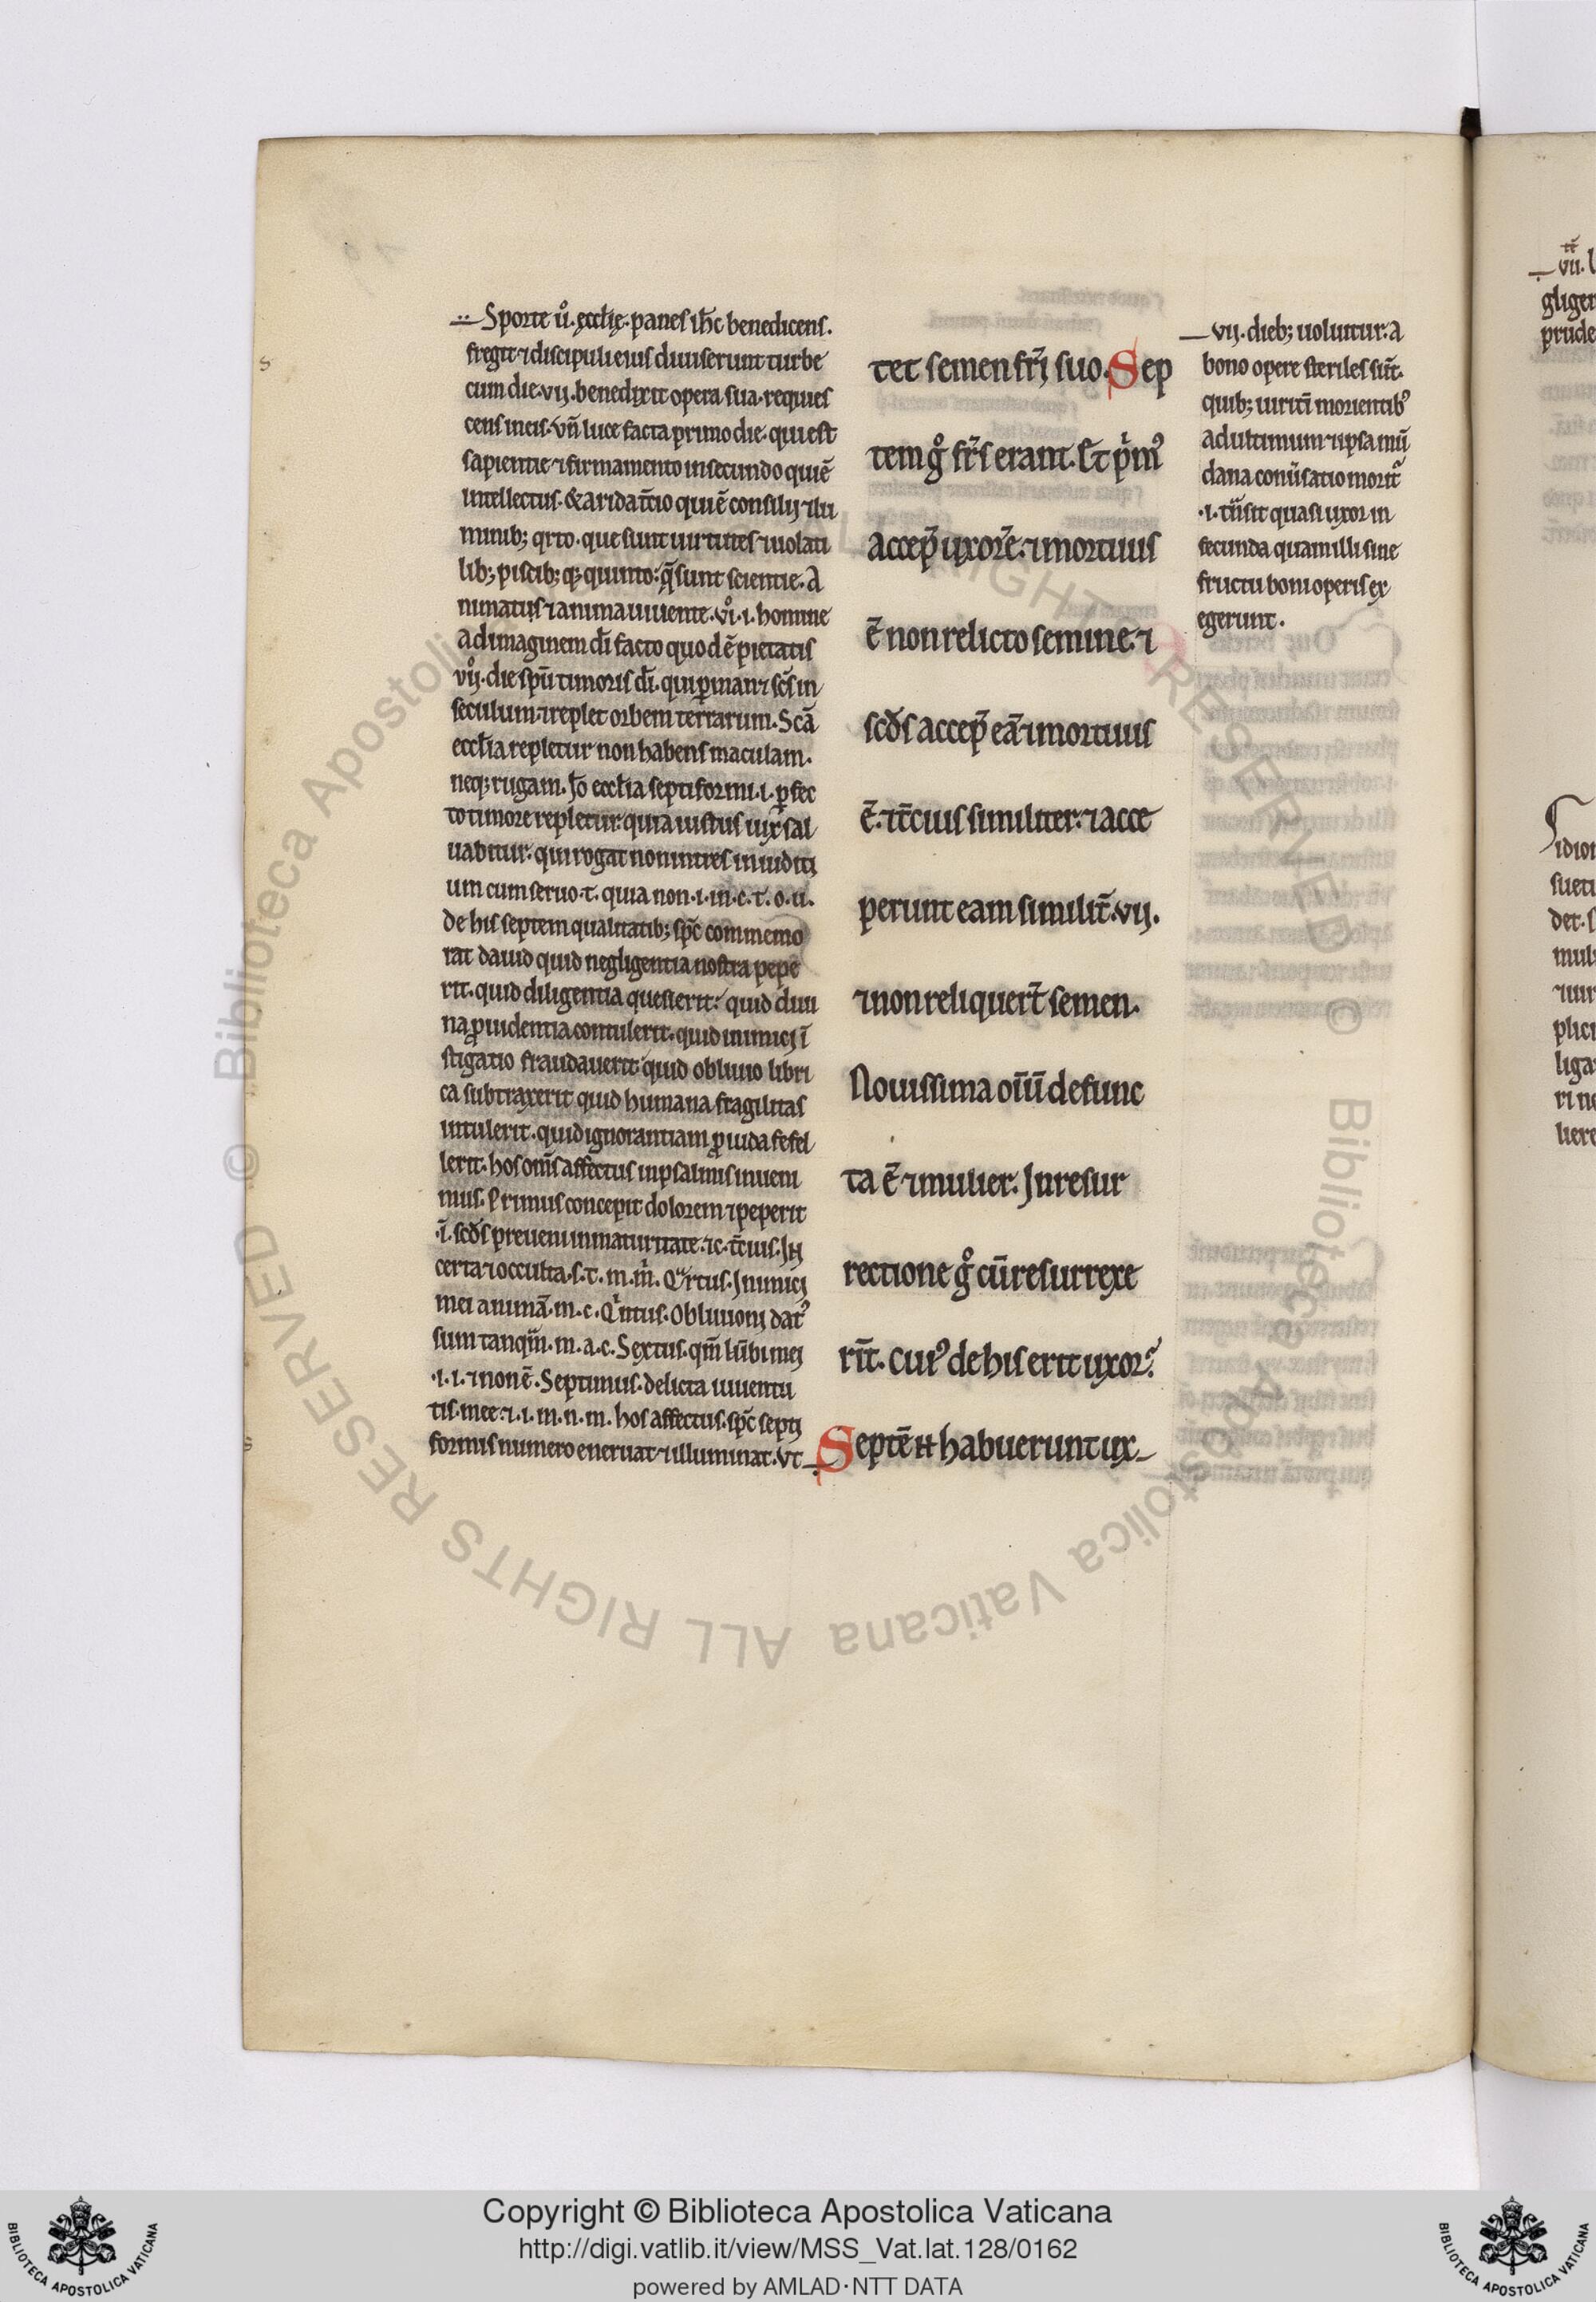 Sporte u̾. ecctie. panes ih̅c benedicens.
fregit ⁊ discipuli eius diuiserunt turbe
cum die. vij. benedixit opera sua. requies
cens in eis. vn̅ luce facta primo die. qui est
sapientie ⁊ firmamento in secundo qui e̅
intellectus. & arida t̅cio qui e̅ consilij ⁊ lu
minib; qrto. que sunt uirtutes ⁊ uolati
lib; piscib; q; quinto: q̅ sunt scientie. A
nimatus ⁊ anima uiuente. vi̊. i. homine
ad imaginem di̅ facto quod e̅ pietatis
vij̊. die sp̅u timoris di̅. qui p̱manet sc̅s in
seculum ⁊ replet orbem terrarum. Sca̅
eccl̅ia repletur non habens maculam.
neq; rugam. Jo eccl̅ia septiformi. i. p̱fec
to timore repletur. quia iustus uix sal
uabitur. qui rogat non intres in iudici
um cum seruo. t. quia non. i. in. c. t. o. u.
de his septem qualitatib; sp̅c commemo
rat dauid quid negligentia nostra pepe
rit. quid diligentia quesierit: quid diui
na ꝓuidentia contulerit. quid inimici i̅
stigatio fraudauerit quid obliuio libri
ca subtraxerit quid humana fragilitas
intulerit. quid ignorantiam ꝓuida fefel
lerit. hos om̅s affectus in psalmis inueni
mus. Primus concepit dolorem ⁊ peperit
.i̅. scd̅s preueni in maturitate. ⁊c. t̅cius. In
certa ⁊ occulta. s. t. m. m̅. Qrtus. Inimici
mei anima̅. m. c. Qi̅ntus. Obliuioni dat᾿
sum tanqm̅. m. a. c. Sextus. qm̅ lu̅bi mei
.i. i. ⁊ non e̅. Septimus. delicta iuuentu
tis. mee. ⁊. i. m. n. m. hos affectus. sp̅c septi
formis numero eneruat ⁊ illuminat. vt
tet semen fr̅i suo. Sep
tem g̊ fr̅s erant. Et p̅m᾿
accep̅ uxore̅. ⁊ mortuus
e̅ non relicto semine. ⁊
scd̅s accep̅ ea̅ ⁊ mortuus
e̅. ⁊ t̅cius similiter. ⁊ acce
perunt eam similit̅. vij.
⁊ non reliquert̅ semen.
Nouissima oi̅u̅ defunc
ta e̅ ⁊ mulier. In resur
rectione g̊ cu̅ resurrexe
rit̅. cui᾿ de his erit uxor?
Septe̅ H habuerunt ux
vij. dieb; uoluitur. a
bono opere steriles su̅t.
quib; uiriti̅ morientib᾿
ad ultimum ⁊ ipsa mu̅
dana conu̅satio morit᾿
.i. tn̅sit quasi uxor in
secunda quam illi sine
fructu boni operis ex
egerunt.
vij.
gliger
prude
idior
sueti
det. s
⁊ uir
plici
liga
ri ne
liere
Copyright © Biblioteca Apostolica Vaticana
http://digi.vatlib.it/view/MSS_Vat.lat.128/0162
powered by AMLAD·NTT DATA
BIBLIOTECA APOSTOLICA VATICANA
BIBLIOTECA APOSTOLICA VATICANA
© Biblioteca Apostolica Vaticana ALL RIGHTS RESERVED